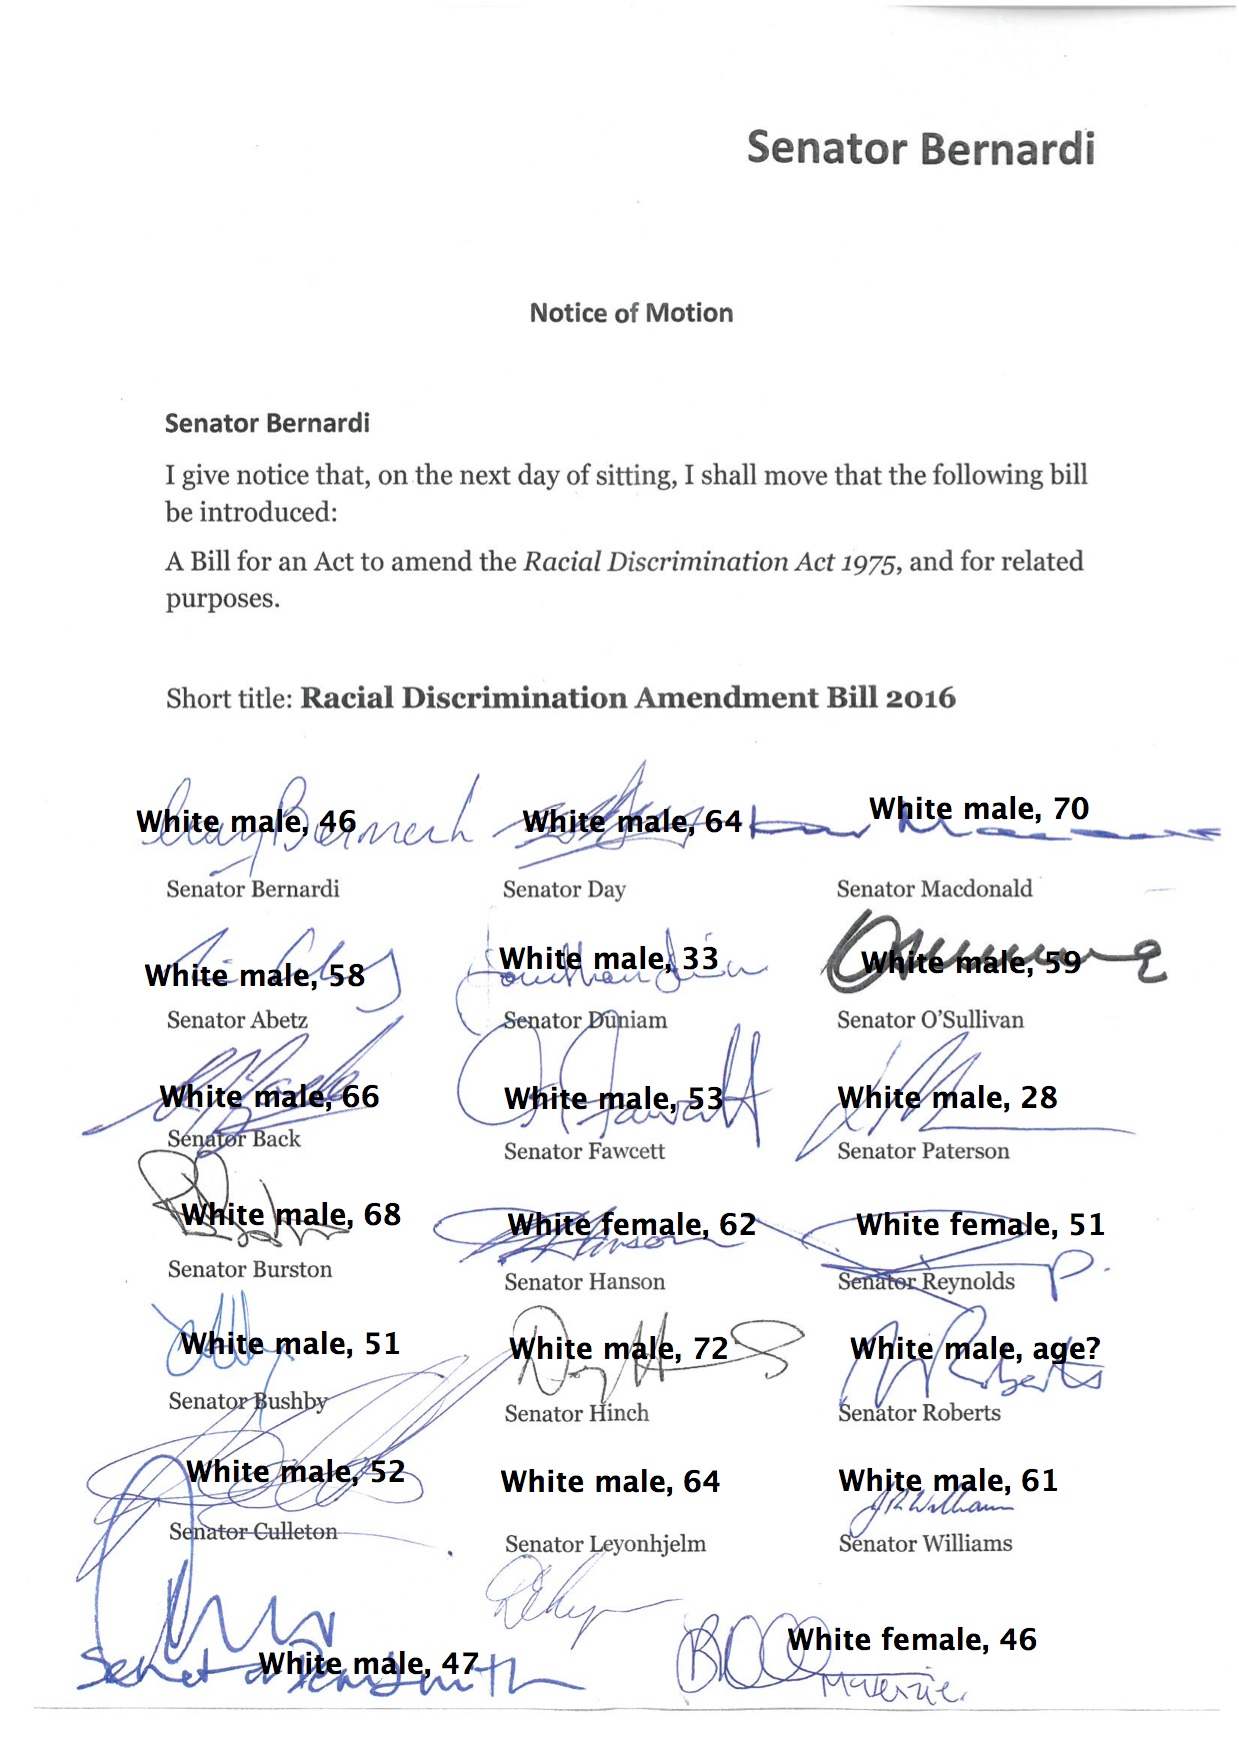 Senator Bernardi
Notice of Motion
Senator Bernardi
I give notice that, on the next day of sitting, I shall move that the following bill
be introduced:
A Bill for an Act to amend the Racial Discrimination Act 1975, and for related
purposes.
Short title: Racial Discrimination Amendment Bill 2016
White male, 46 White male, 64 White male, 70
Senator Bernardi Senator Day Senator Macdonald
White male, 58 White male, 33 White male, 59
Senator Abetz Senator Duniam Senator O'Sullivan
White male, 66 White male, 53 White male, 28
Senator Back Senator Fawcett Senator Paterson
White male, 68 White female, 62 White female, 51
Senator Burston Senator Hanson Senator Reynolds
White male, 51 White male, 72 White male, age?
Senator Bushby Senator Hinch Senator Roberts
White male, 52 White male, 64 White male, 61
Senator Culleton Senator Leyonhjelm Senator Williams
White female, 46
White male, 47
McKenzie